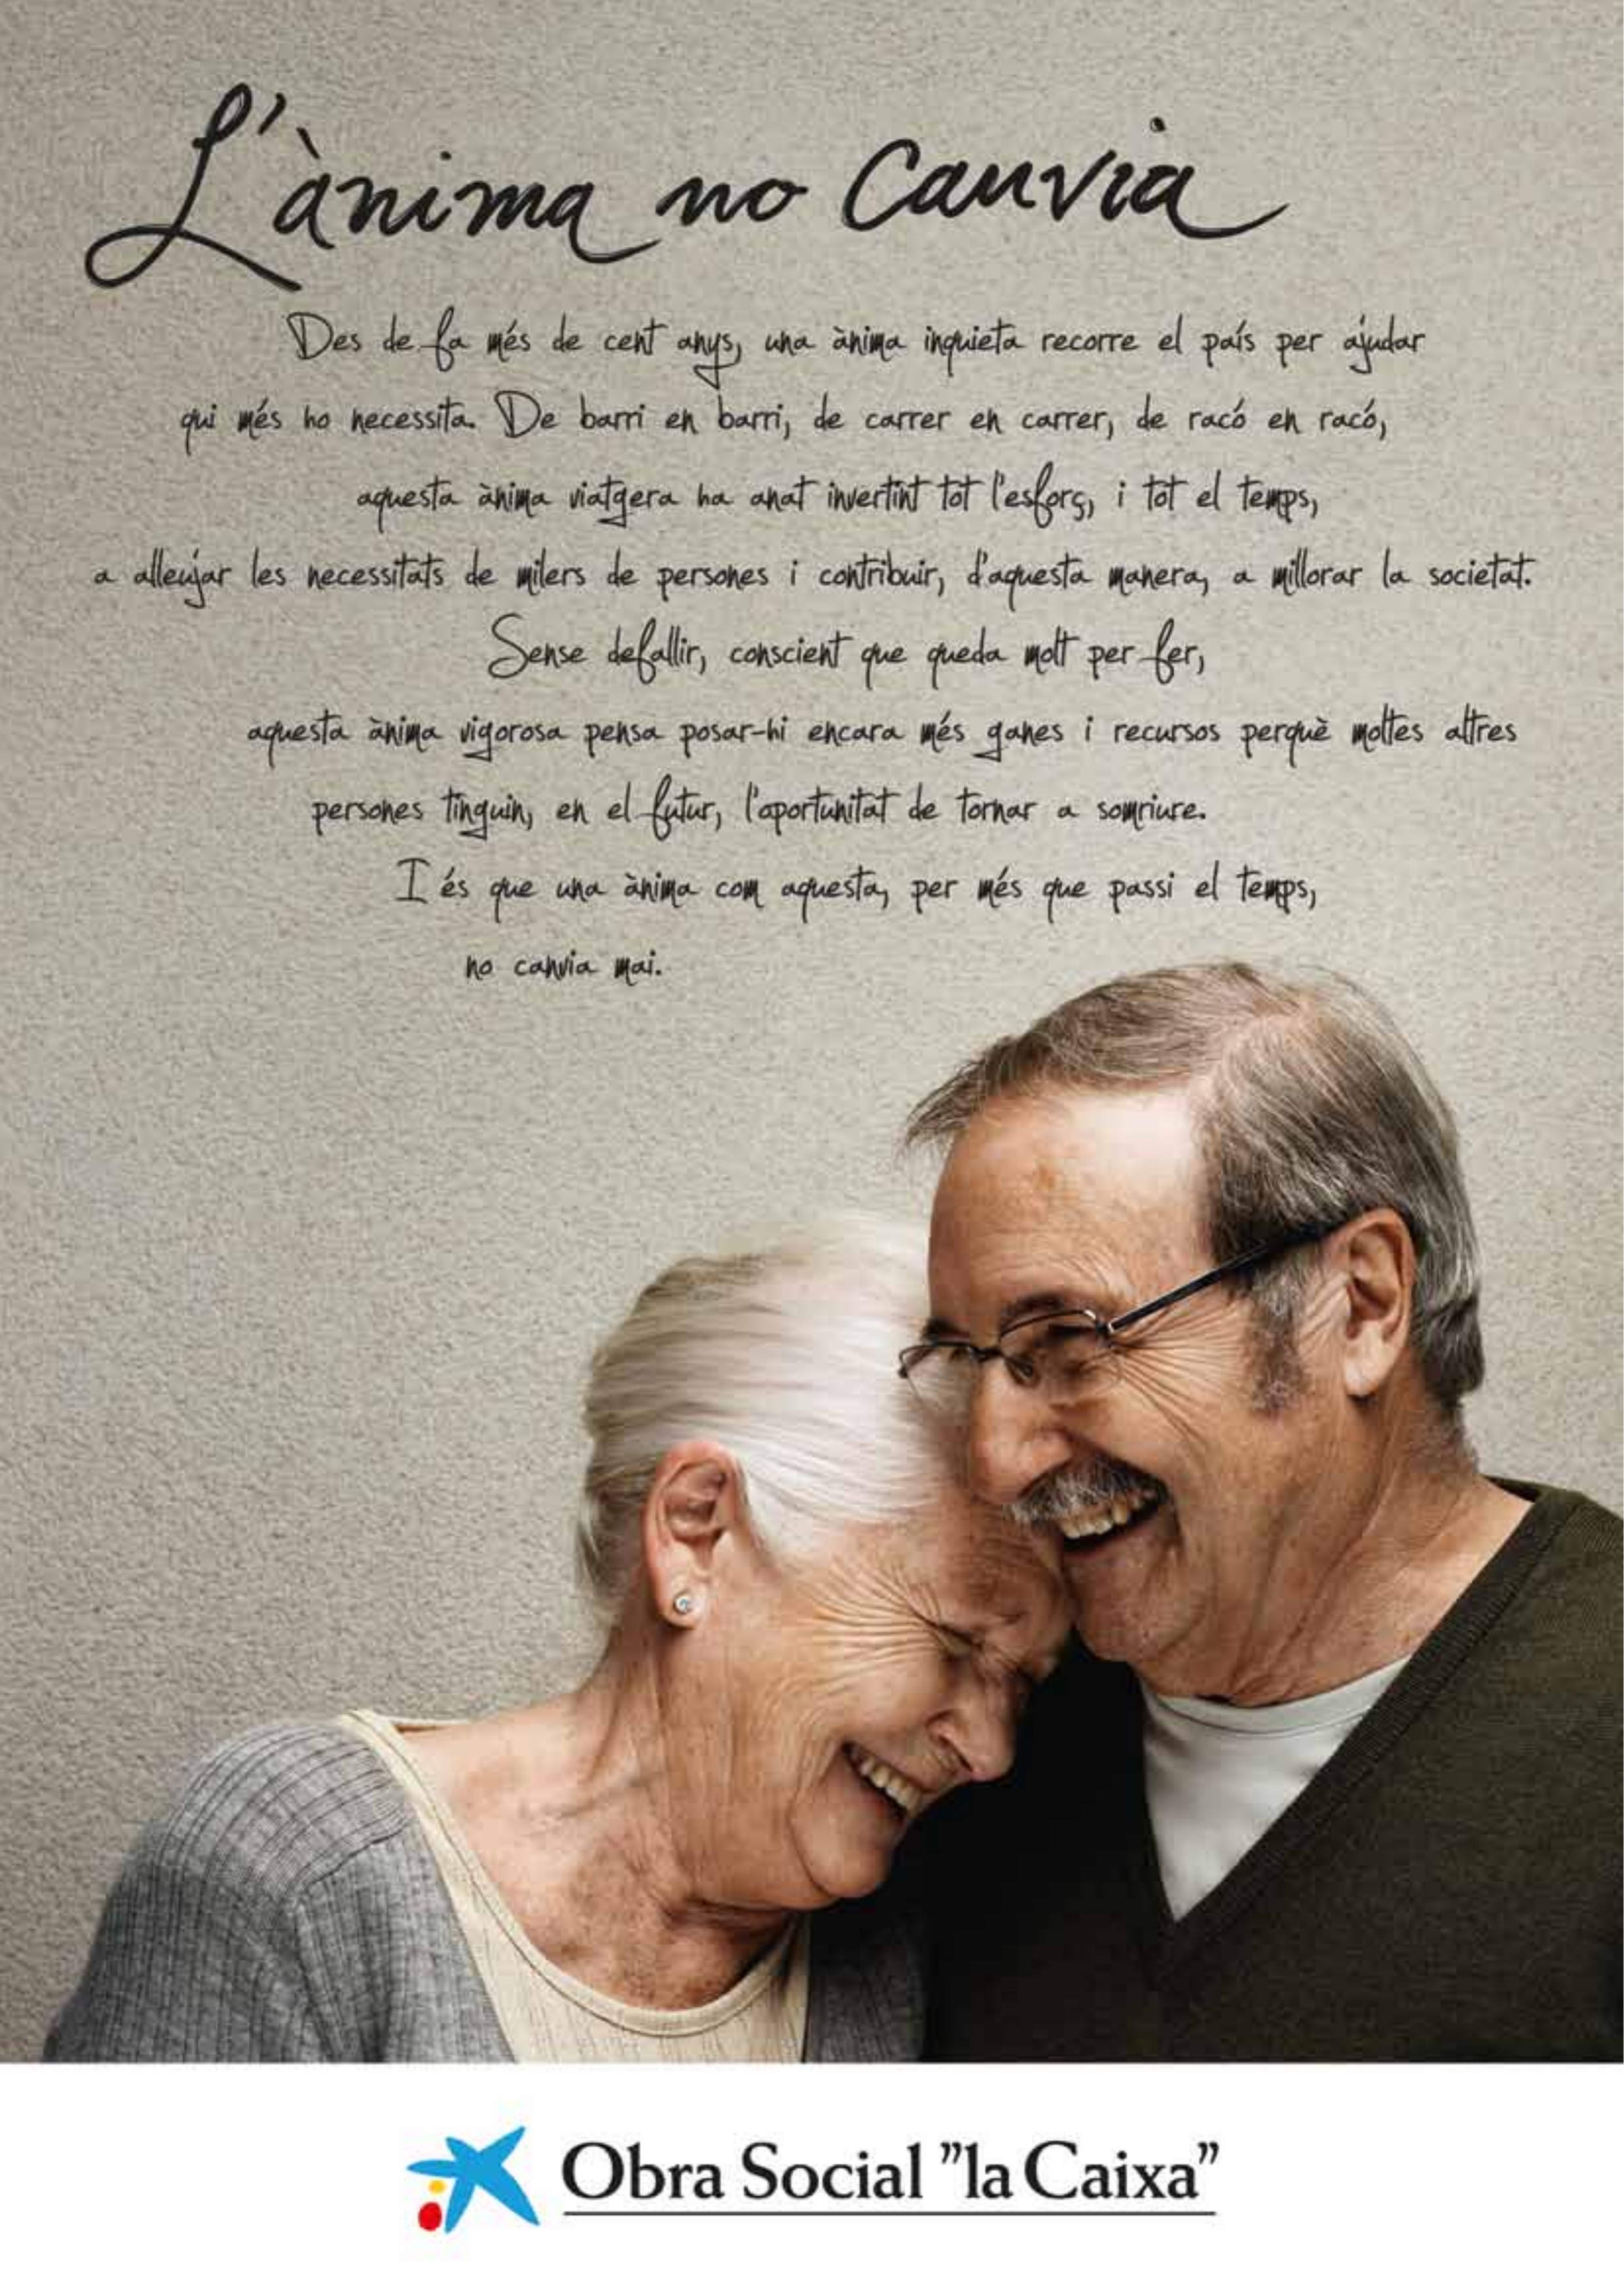 L'ànima no canvia
Des de fa més de cent anys, una ànima inquieta recorre el país per ajudar
qui més ho necessita. De barri en barri, de carrer en carrer, de racó en racó,
aquesta ànima viatgera ha anat invertint tot l'esforç, i tot el temps,
a alleujar les necessitats de milers de persones i contribuir, d'aquesta manera, a millorar la societat.
Sense defallir, conscient que queda molt per fer,
aquesta ànima vigorosa pensa posar-hi encara més ganes i recursos perquè moltes altres
persones tinguin, en el futur, l'oportunitat de tornar a somriure.
I és que una ànima com aquesta, per més que passi el temps,
no canvia mai.
Obra Social "la Caixa"